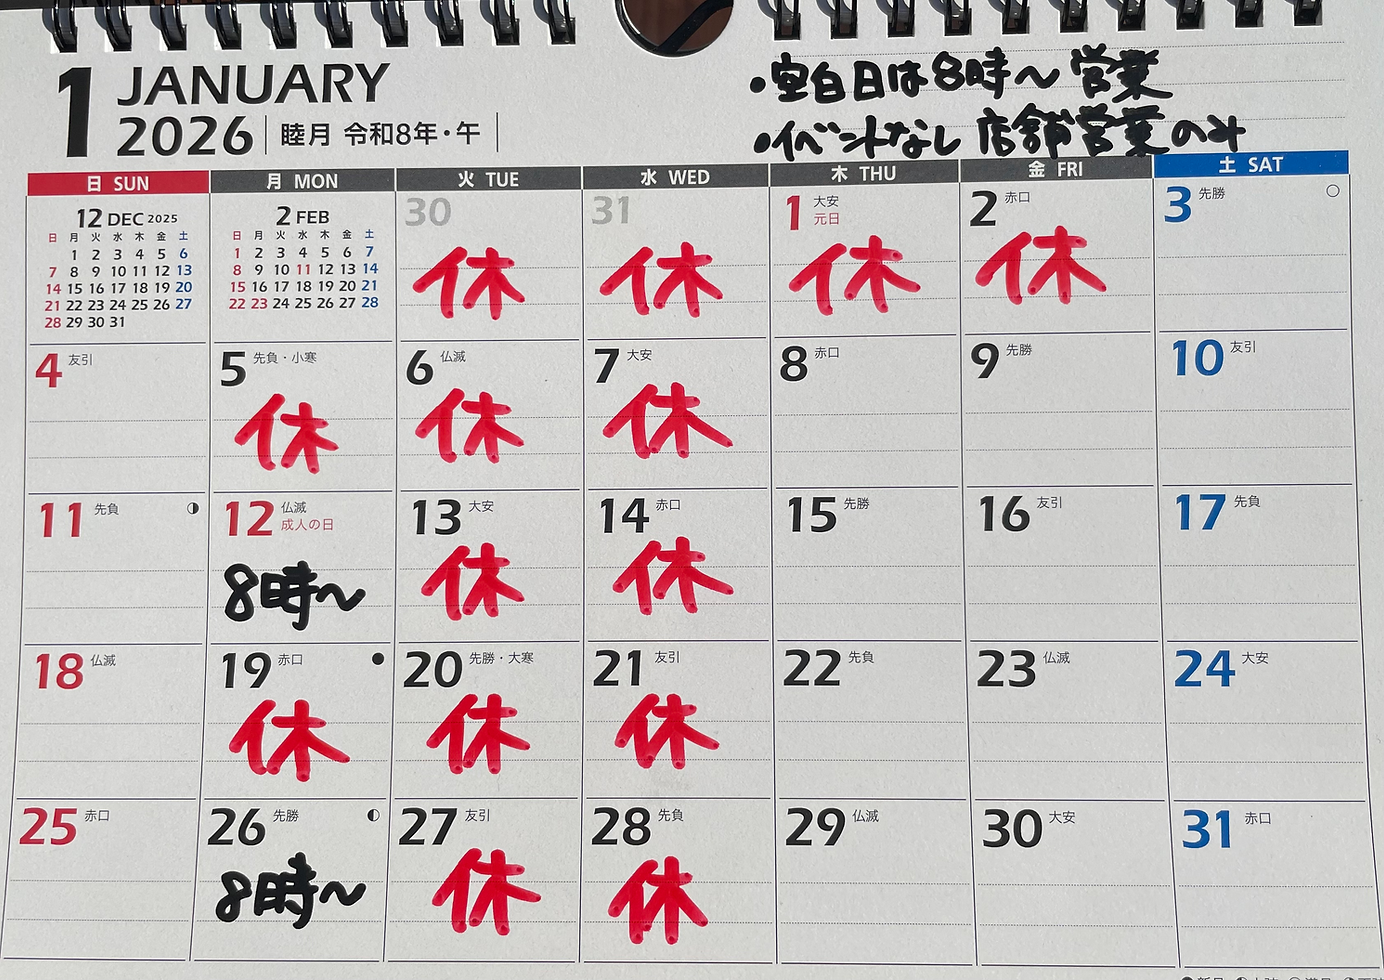 1 JANUARY
2026 睦月 令和8年・午
・空白日は8時〜営業
・イベントなし 店舗営業のみ
日 SUN 月 MON 火 TUE 水 WED 木 THU 金 FRI 土 SAT
12 DEC 2025
日 月 火 水 木 金 土
1 2 3 4 5 6
7 8 9 10 11 12 13
14 15 16 17 18 19 20
21 22 23 24 25 26 27
28 29 30 31
2 FEB
日 月 火 水 木 金 土
1 2 3 4 5 6 7
8 9 10 11 12 13 14
15 16 17 18 19 20 21
22 23 24 25 26 27 28
30
休
31
休
1 大安
元日
休
2 赤口
休
3 先勝
4 友引
5 先負・小寒
休
6 仏滅
休
7 大安
休
8 赤口
9 先勝
10 友引
11 先負
12 仏滅
成人の日
8時〜
13 大安
休
14 赤口
休
15 先勝
16 友引
17 先負
18 仏滅
19 赤口
休
20 先勝・大寒
休
21 友引
休
22 先負
23 仏滅
24 大安
25 赤口
26 先勝
8時〜
27 友引
休
28 先負
休
29 仏滅
30 大安
31 赤口